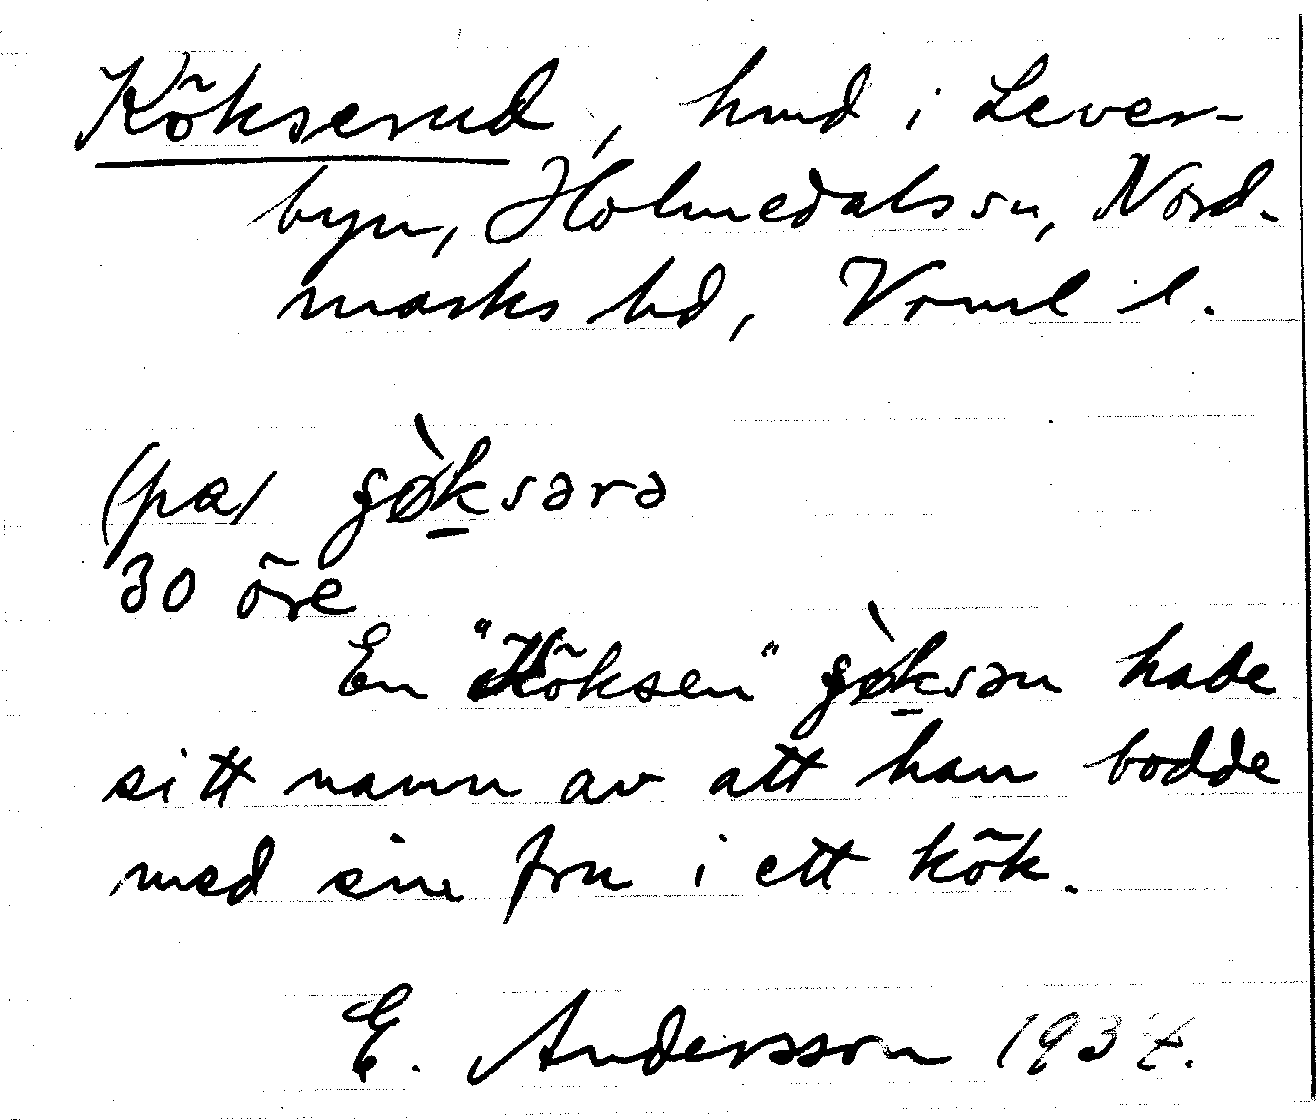 Kökserud, hmd i Lever-
byn, Holmedals sn, Nord-
marks hd, Vrml l.
(pa) gø̀ksərə
30 öre
En "Köksen" gø̀ksən hade
sitt namn av att han bodde
med sin fru i ett kök.
E. Andersson 1934.